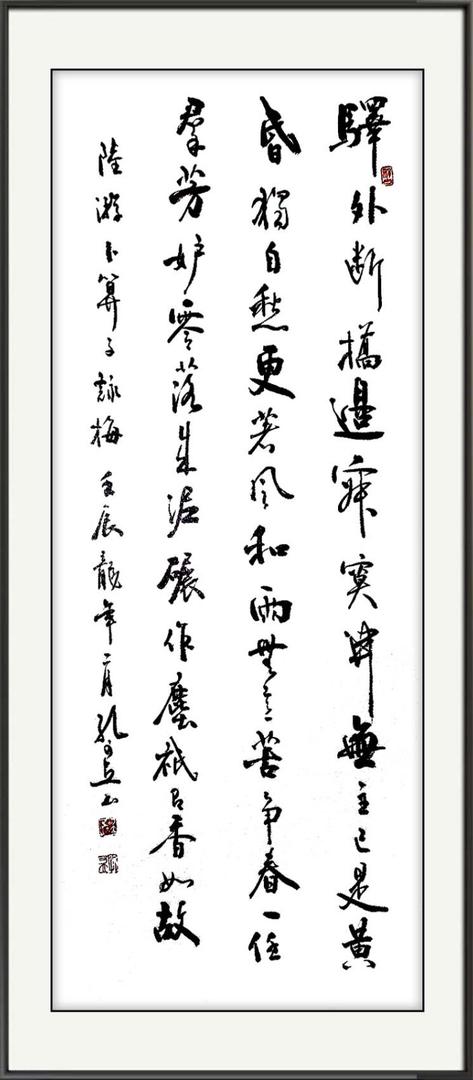 驛外断橋邊寂寞開無主已是黄
昏獨自愁更著風和雨無意苦争春一任
羣芳妒零落成泥碾作塵祇有香如故
陸游卜算子詠梅 壬辰龍年二月